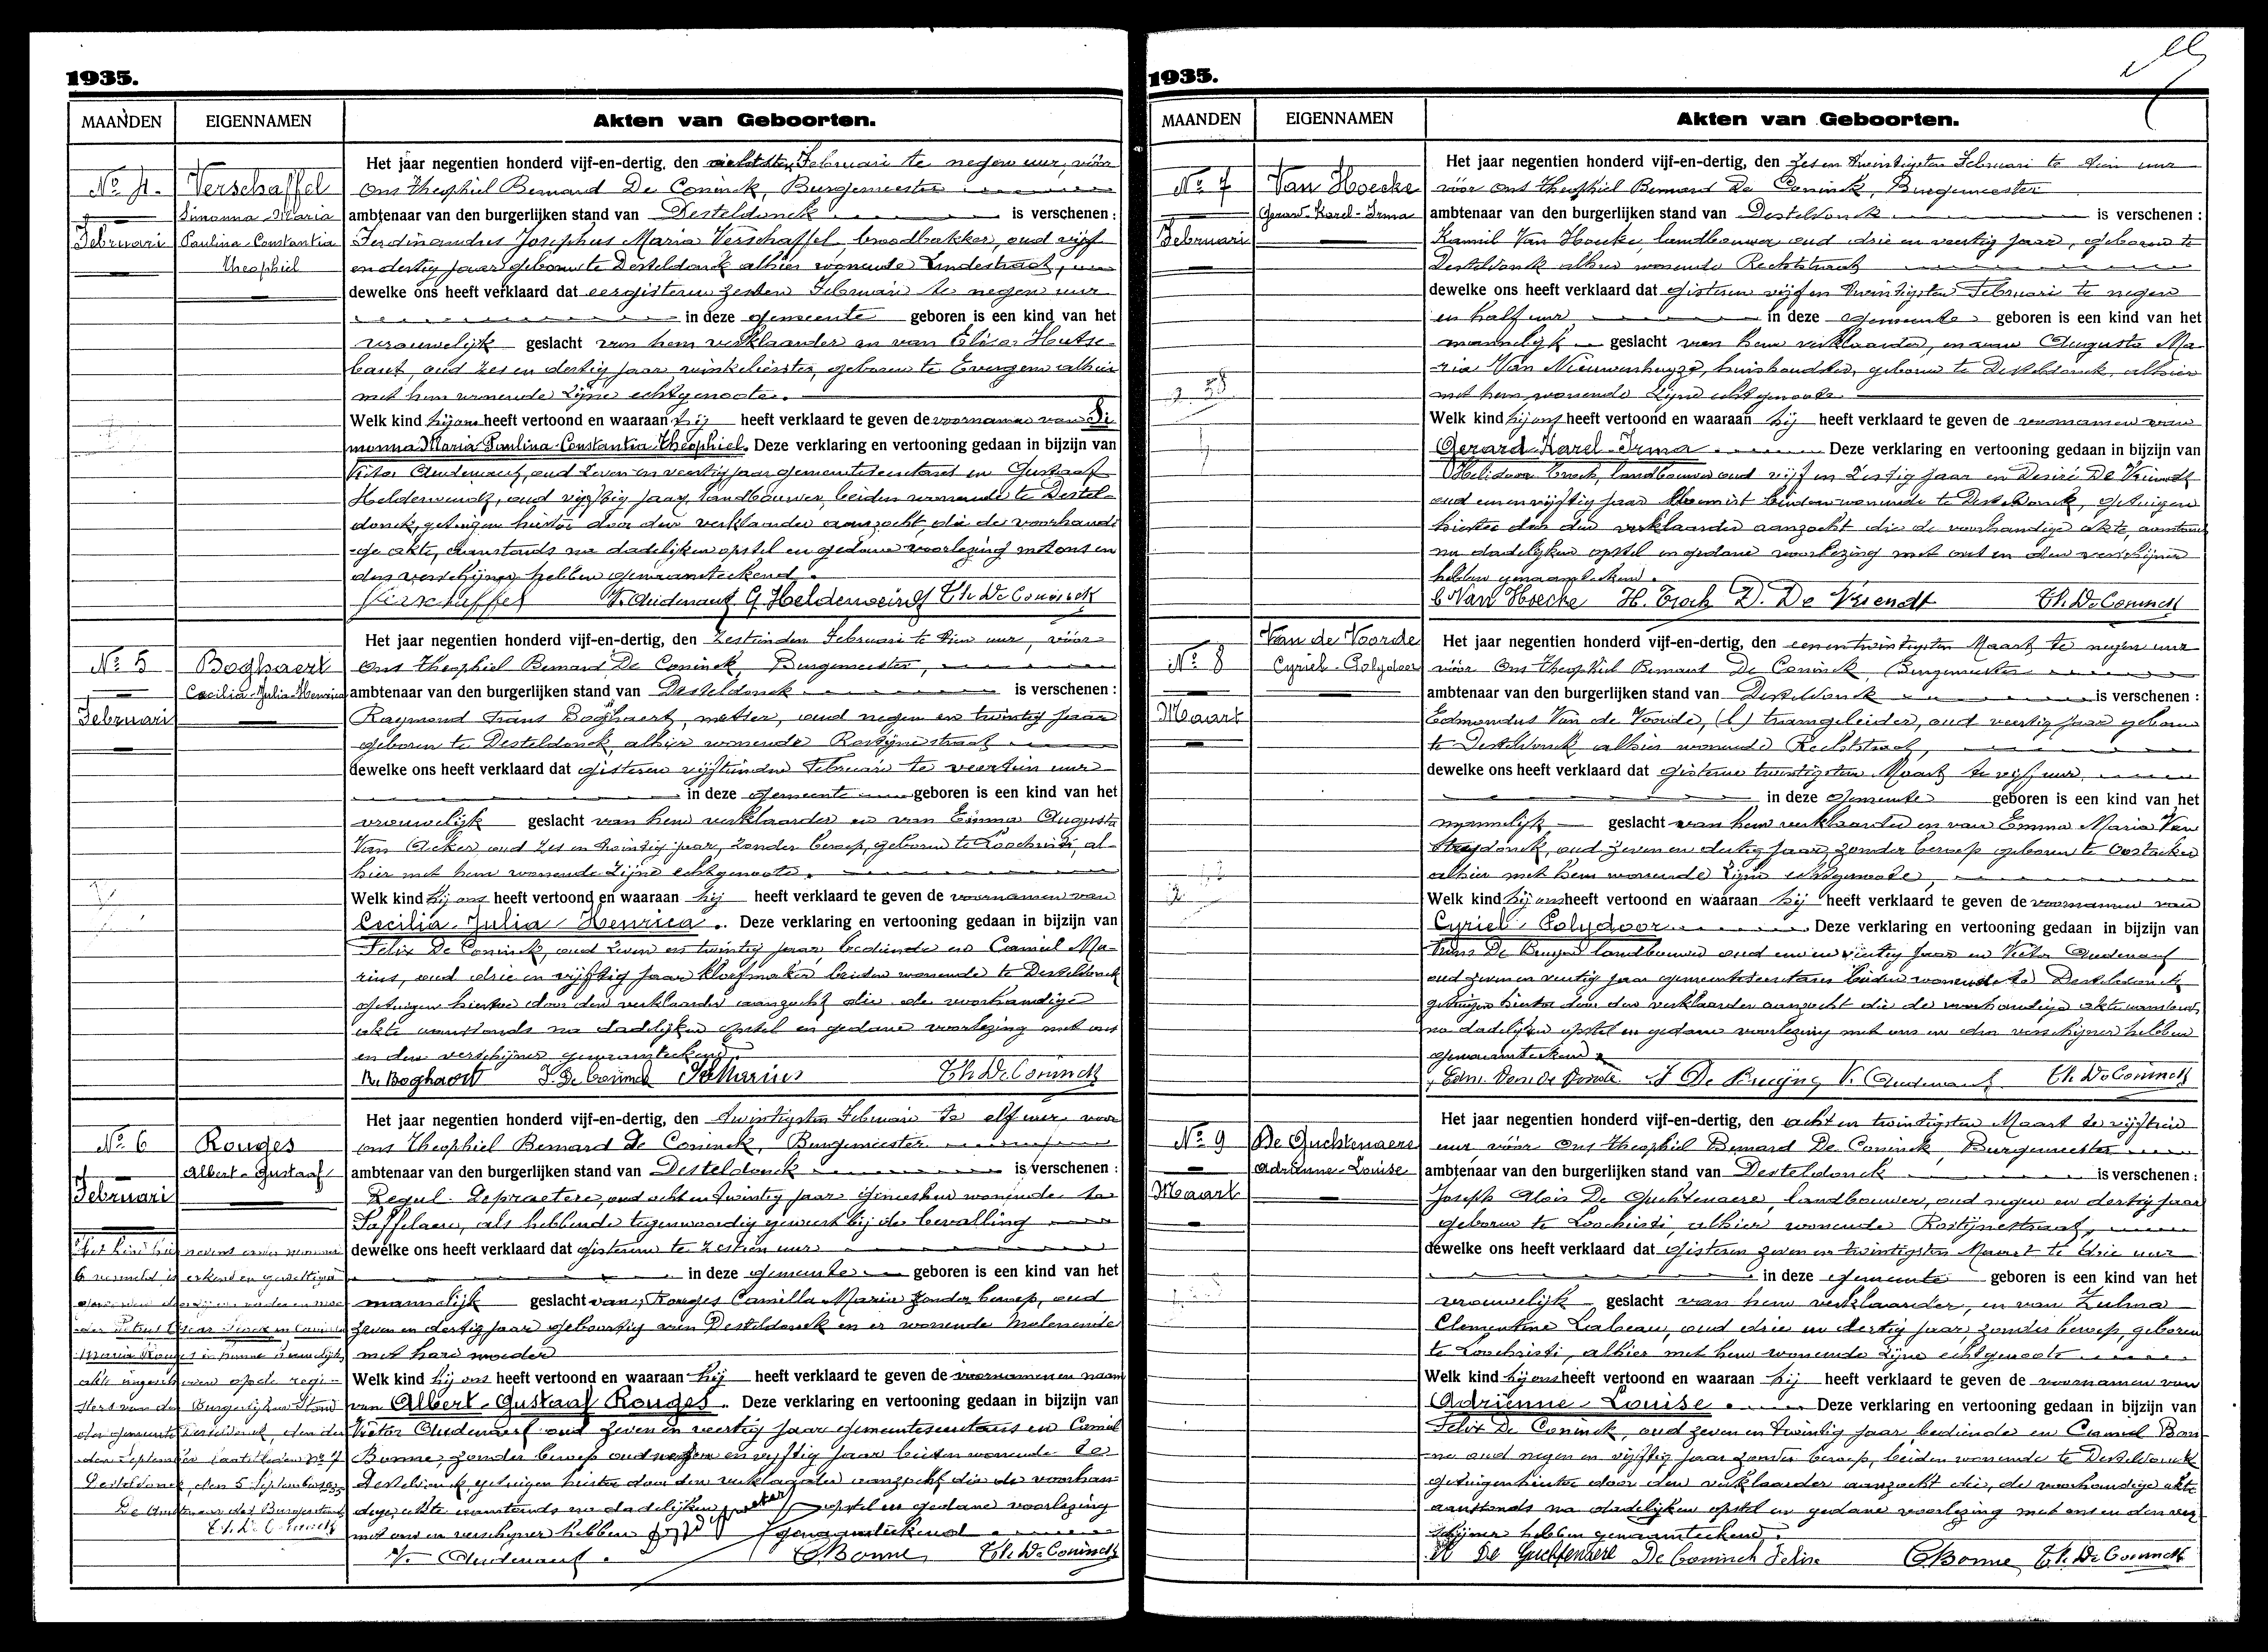 1935.
MAANDEN EIGENNAMEN Akten van Geboorten.
Het jaar negentien honderd vijf-en-dertig, den Februari te negen uur, vóór
Nr 4. Verschaffel ons Theophiel Bernard De Coninck, Burgemeester
Simonna-Maria ambtenaar van den burgerlijken stand van Desteldonck is verschenen :
Februari Paulina-Constantia Ferdinandus Josephus Maria Verschaffel broodbakker, oud vijf
Theophiel en dertig jaar geboren te Desteldonck alhier wonende Lindestraat,
dewelke ons heeft verklaard dat eergisteren zesden Februari te negen uur
in deze gemeente geboren is een kind van het
vrouwelijk geslacht van hem verklaarder en van Elisa Hutse-
baut, oud zes en dertig jaar winkelierster, geboren te Evergem alhier
met hem wonende zijne echtgenoote.
Welk kind hij ons heeft vertoond en waaraan hij heeft verklaard te geven de voornamen van Si
monna Maria Paulina-Constantia Theophiel. Deze verklaring en vertooning gedaan in bijzijn van
Victor Audenaert, oud zeven en veertig jaar gemeentesecretaris en Gustaaf
Helderweirdt, oud vijftig jaar, landbouwer, beiden wonende te Destel-
donck, getuigen hiertoe door den verklaarder aanzocht, die de voorhandi
ge akte, aanstonds na dadelijken opstel en gedane voorlezing met ons en
den verschijner hebben genaamteekend.
Verschaffel V. Audenaert G Helderweirdt Th. De Coninck
Het jaar negentien honderd vijf-en-dertig, den zestienden Februari te tien uur, vóór
Nr 5 Boghaert ons Theophiel Bernard De Coninck, Burgemeester,
Cecilia-Julia-Henrica ambtenaar van den burgerlijken stand van Desteldonck is verschenen :
Februari Raymond Frans Boghaert, metser, oud negen en twintig jaar
geboren te Desteldonck alhier wonende Rostijnestraat
dewelke ons heeft verklaard dat gisteren vijftienden Februari te veertien uur
in deze gemeente geboren is een kind van het
vrouwelijk geslacht van hem verklaarder en van Emma Augusta
Van Acker oud zes en twintig jaar, zonder beroep, geboren te Loochristi, al-
hier met hem wonende zijne echtgenoote.
Welk kind hij ons heeft vertoond en waaraan hij heeft verklaard te geven de voornamen van
Cecilia-Julia-Henrica. Deze verklaring en vertooning gedaan in bijzijn van
Felix De Coninck, oud zeven en twintig jaar, bediende en Camiel Ma-
rius, oud drie en vijftig jaar kloefmaker beiden wonende te Desteldonck
getuigen hiertoe door den verklaarder aanzocht die de voorhandige
akte aanstonds na dadelijken opstel en gedane voorlezing met ons
en den verschijner genaamteekend.
R. Boghaert F. De Coninck Marius Th. De Coninck
Het jaar negentien honderd vijf-en-dertig, den twintigsten Februari te elf uur voor
Nr 6 Rouges ons Theophiel Bernard De Coninck, Burgemeester
Albert-Gustaaf ambtenaar van den burgerlijken stand van Desteldonck is verschenen :
Februari Regul. Depraetere, oud acht en twintig jaar geneesheer wonende te
Saffelaere, als hebbende tegenwoordig geweest bij de bevalling
dewelke ons heeft verklaard dat gisteren te zestien uur
in deze gemeente geboren is een kind van het
mannelijk geslacht van Rouges Camilla Maria zonder beroep, oud
zeven en dertig jaar geboortig van Desteldonck en er wonende Moleneinde
met hare moeder
Welk kind hij ons heeft vertoond en waaraan hij heeft verklaard te geven de voornamen en naam
van Albert-Gustaaf Rouges. Deze verklaring en vertooning gedaan in bijzijn van
Victor Audenaert oud zeven en veertig jaar gemeentesecretaris en Camiel
Bonne, zonder beroep oud negen en vijftig jaar beiden wonende te
Desteldonck, getuigen hiertoe door den verklaarder aanzocht die de voorhan-
dige akte aanstonds na dadelijken opstel en gedane voorlezing
met ons en verschijner hebben genaamteekend
V. Audenaert. CBonne Th. De Coninck
Maria Rouges
akte ingeschreven op de regi-
sters van den Burgerlijken Stand
der gemeente Desteldonck
Desteldonck, den 5 September 1935
De Ambtenaar des Burgerstands
Th. De Coninck
1935.
MAANDEN EIGENNAMEN Akten van Geboorten.
Het jaar negentien honderd vijf-en-dertig, den zes en twintigsten Februari te tien uur
Nr 7 Van Hoecke vóór ons Theophiel Bernard De Coninck, Burgemeester
Gerard-Karel-Irma ambtenaar van den burgerlijken stand van Desteldonck is verschenen :
Februari Kamiel Van Hoecke, landbouwer oud drie en veertig jaar, geboren te
Desteldonk alhier wonende Rechtstraat
dewelke ons heeft verklaard dat gisteren vijf en twintigsten Februari te negen
en half uur in deze gemeente geboren is een kind van het
mannelijk geslacht van hem verklaarder, en van Augusta Ma-
ria Van Nieuwenhuyze, huishoudster, geboren te Desteldonck, alhier
met hem wonende zijne echtgenoote
Welk kind hij ons heeft vertoond en waaraan hij heeft verklaard te geven de voornamen van
Gerard-Karel-Irma Deze verklaring en vertooning gedaan in bijzijn van
Helidoor Troch, landbouwer oud vijf en zestig jaar en Desiré De Vriendt
oud een en vijftig jaar bloemist beiden wonende te Desteldonck, getuigen
hiertoe door den verklaarder aanzocht die de voorhandige akte, aanstonds
na dadelijken opstel en gedane voorlezing met ons en den verschijner
hebben genaamteekend.
C Van Hoecke H. Troch D. De Vriendt Th. De Coninck
Van de Voorde Het jaar negentien honderd vijf-en-dertig, den een en twintigsten Maart te negen uur
Nr 8 Cyriel-Polydoor vóór ons Theophiel Bernard De Coninck, Burgemeester
ambtenaar van den burgerlijken stand van Desteldonck is verschenen :
Maart Edmondus Van de Voorde, (l) tramgeleider, oud veertig jaar geboren
te Desteldonck alhier wonende Rechtstraat,
dewelke ons heeft verklaard dat gisteren twintigsten Maart te vijf uur
in deze gemeente geboren is een kind van het
mannelijk geslacht van hem verklaarder en van Emma Maria Van
Strydonck, oud zeven en dertig jaar, zonder beroep geboren te Oostacker
alhier met hem wonende zijne echtgenoote,
Welk kind hij ons heeft vertoond en waaraan hij heeft verklaard te geven de voornamen van
Cyriel-Polydoor Deze verklaring en vertooning gedaan in bijzijn van
De Bruyne landbouwer oud jaar en Victor Audenaert
oud zeven en veertig jaar gemeentesecretaris beiden wonende te Desteldonck
getuigen hiertoe door den verklaarder aanzocht die de voorhandige akte aanstonds
na dadelijken opstel en gedane voorlezing met ons en den verschijner hebben
genaamteekend
Edm. Van de Voorde De Bruyne V. Audenaert Th. De Coninck
Het jaar negentien honderd vijf-en-dertig, den acht en twintigsten Maart te vijftien
Nr 9 De Guchtenaere uur, vóór ons Theophiel Bernard De Coninck, Burgemeester
Adrienne-Louise ambtenaar van den burgerlijken stand van Desteldonck is verschenen :
Maart Joseph Alois De Guchtenaere, landbouwer, oud negen en dertig jaar
geboren te Loochristi, alhier wonende Rostijnestraat,
dewelke ons heeft verklaard dat gisteren zeven en twintigsten Maart te drie uur
in deze gemeente geboren is een kind van het
vrouwelijk geslacht van hem verklaarder, en van Zulma
Clementine Labeau, oud drie en dertig jaar, zonder beroep, geboren
te Loochristi, alhier met hem wonende zijne echtgenoote
Welk kind hij ons heeft vertoond en waaraan hij heeft verklaard te geven de voornamen van
Adrienne-Louise. Deze verklaring en vertooning gedaan in bijzijn van
Felix De Coninck, oud zeven en twintig jaar, bediende en Camiel Bon-
ne oud negen en vijftig jaar zonder beroep, beiden wonende te Desteldonck
getuigen hiertoe door den verklaarder aanzocht die, de voorhandige akte
aanstonds na dadelijken opstel en gedane voorlezing met ons en den ver-
schijner hebben genaamteekend.
De Guchtenaere De Coninck Felix CBonne Th. De Coninck